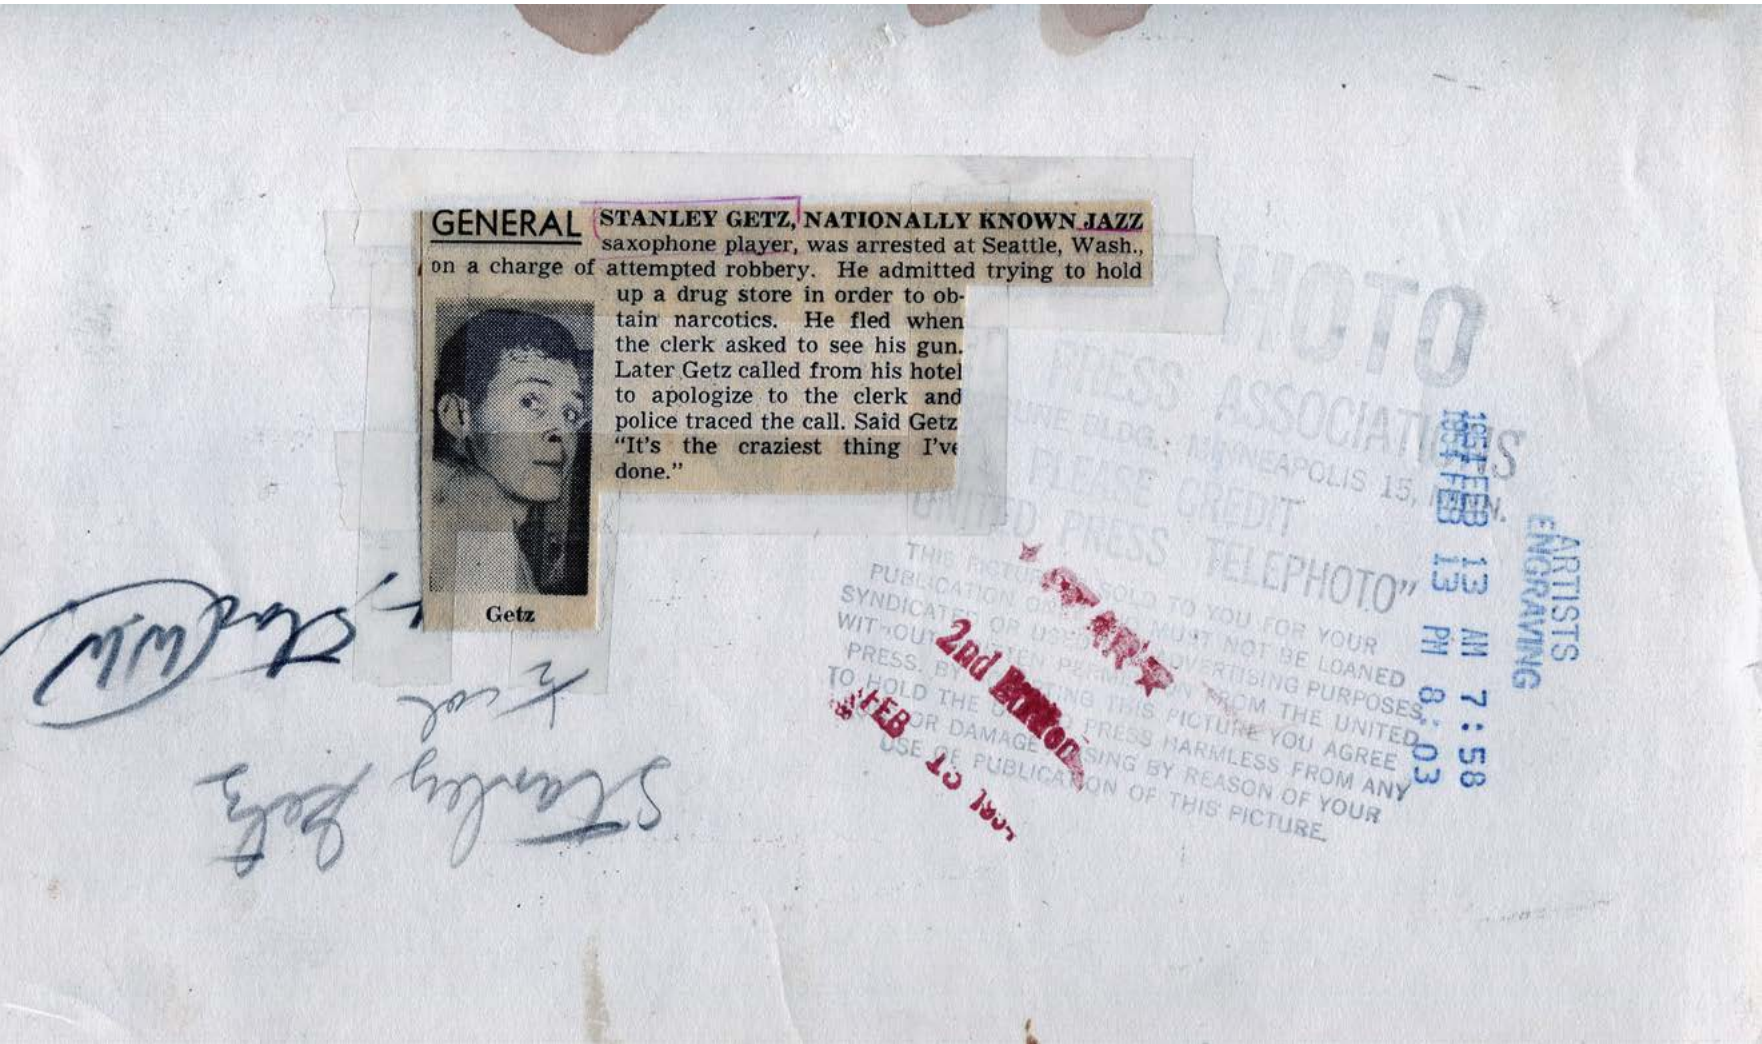 GENERAL STANLEY GETZ, NATIONALLY KNOWN JAZZ
saxophone player, was arrested at Seattle, Wash.,
on a charge of attempted robbery. He admitted trying to hold
up a drug store in order to ob-
tain narcotics. He fled when
the clerk asked to see his gun.
Later Getz called from his hotel
to apologize to the clerk and
police traced the call. Said Getz
“It's the craziest thing I've
done.”
Getz
PHOTO
PRESS ASSOCIATIONS
BLDG.: MINNEAPOLIS 15, MINN.
PLEASE CREDIT
UNITED PRESS TELEPHOTO”
THIS PICTURE SOLD TO YOU FOR YOUR
PUBLICATION MUST NOT BE LOANED
SYNDICATED OR USED ADVERTISING PURPOSES
WITHOUT WRITTEN PERMISSION FROM THE UNITED
PRESS. BY THIS PICTURE YOU AGREE
TO HOLD THE PRESS HARMLESS FROM ANY
OR DAMAGE ARISING BY REASON OF YOUR
USE OF PUBLICATION OF THIS PICTURE.
STAR
2nd Edition
FEB 13
1954 FEB 13 AM 7:58
1954 FEB 13 PM 8:03
ARTISTS
ENGRAVING
Stanley Getz